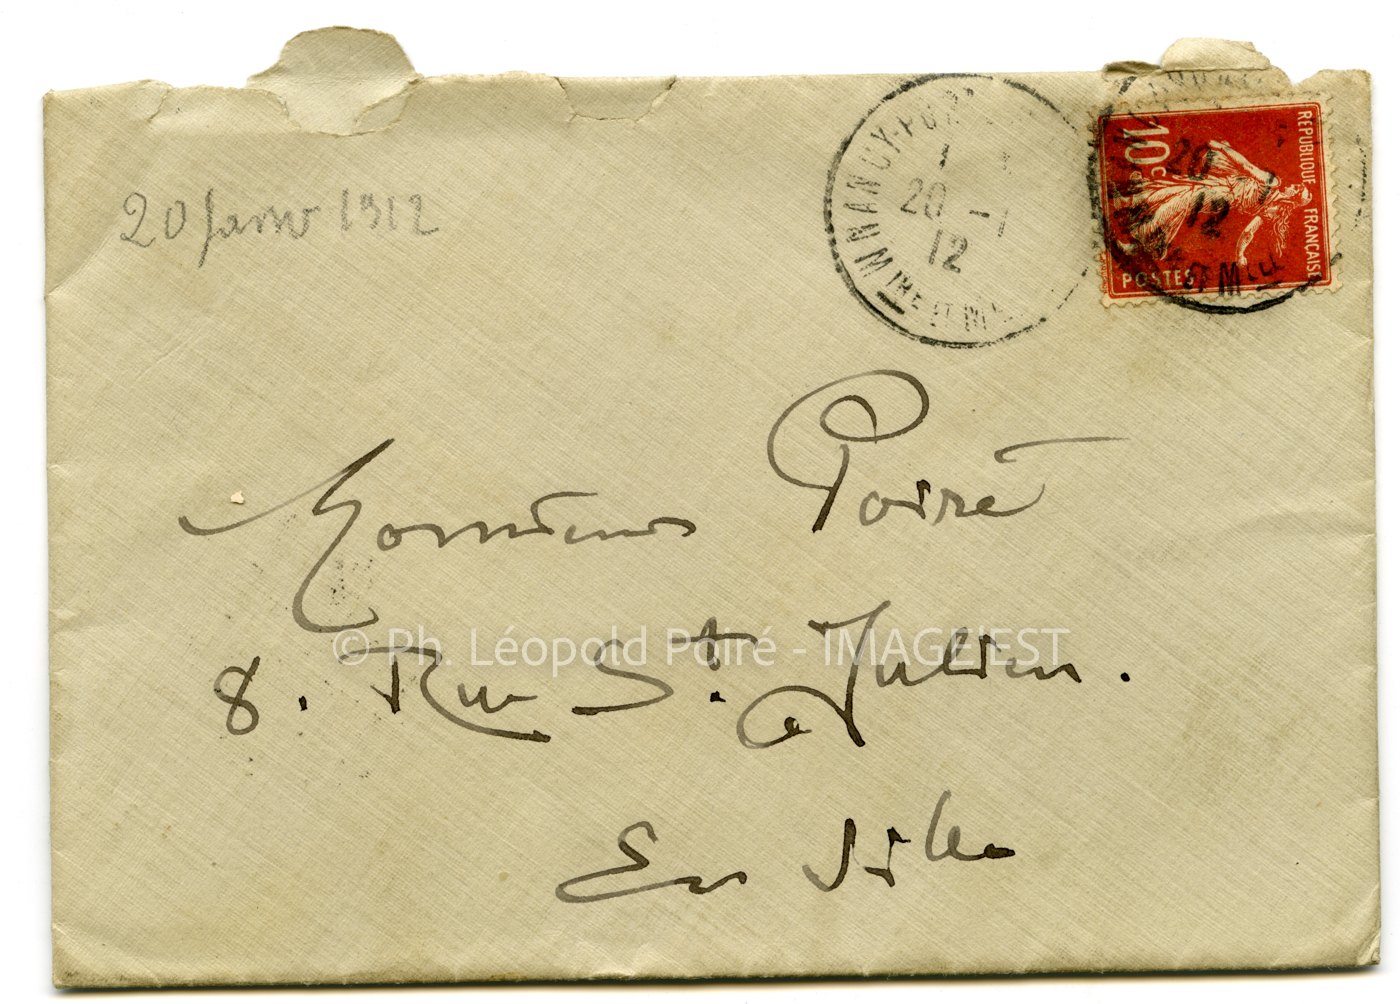 20 Janv 1912
NANCY-PORT
20 -1
12
MRE ET MLLE
REPUBLIQUE FRANÇAISE
10c
POSTES
20
12
ET MLLE
Monsieur Poiré
8. Rue St. Julien.
En Ville
© Ph. Léopold Poiré - IMAGE'EST